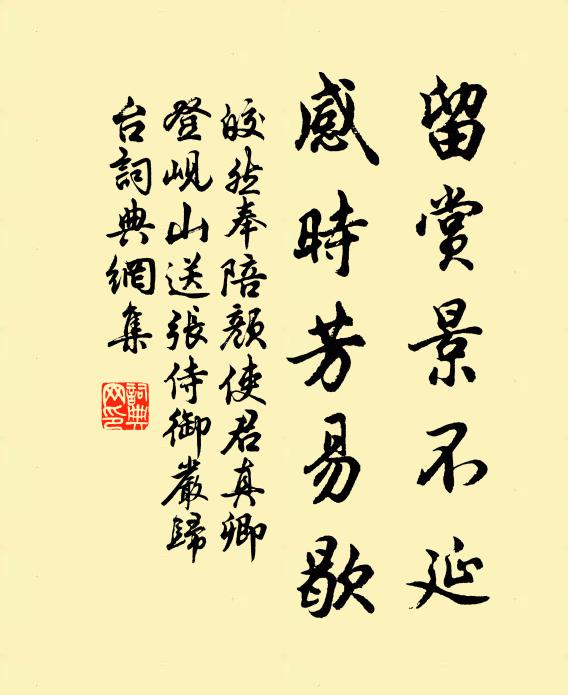 留賞景不延
感時芳易歇
皎然奉陪顏使君真卿
登峴山送張侍御嚴歸
台詞典網集
詞典
网印